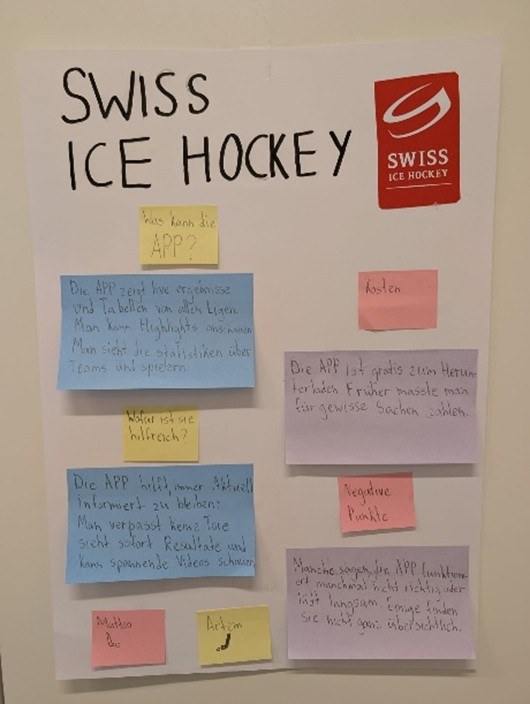 SWISS
ICE HOCKEY
SWISS
ICE HOCKEY
Was kann die
APP?
Die APP zeigt live ergebnisse
und Tabellen von allen Ligen.
Man kann Highlights anschauen
Man sieht die statistiken über
Teams und spielern.
Wofür ist sie
hilfreich?
Die APP hilft immer Aktuell
informert zu bleiben:
Man verpasst keine Tore
sieht sofort Resultate und
kann spannende Videos schauen
Kosten
Die APP ist gratis zum Herun
terladen Früher musste man
für gewisse Sachen zahlen.
Negative
Punkte
Manche sagen, die APP funktioni
ert manchmal nicht richtig oder
läft langsam. Einige finden
sie nicht ganz übersichtlich.
Mattia
Artem
J